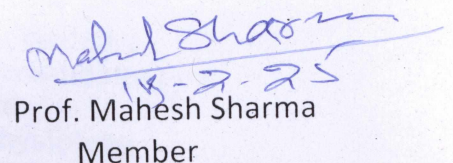 Mahesh Sharma
18-2-25
Prof. Mahesh Sharma
Member